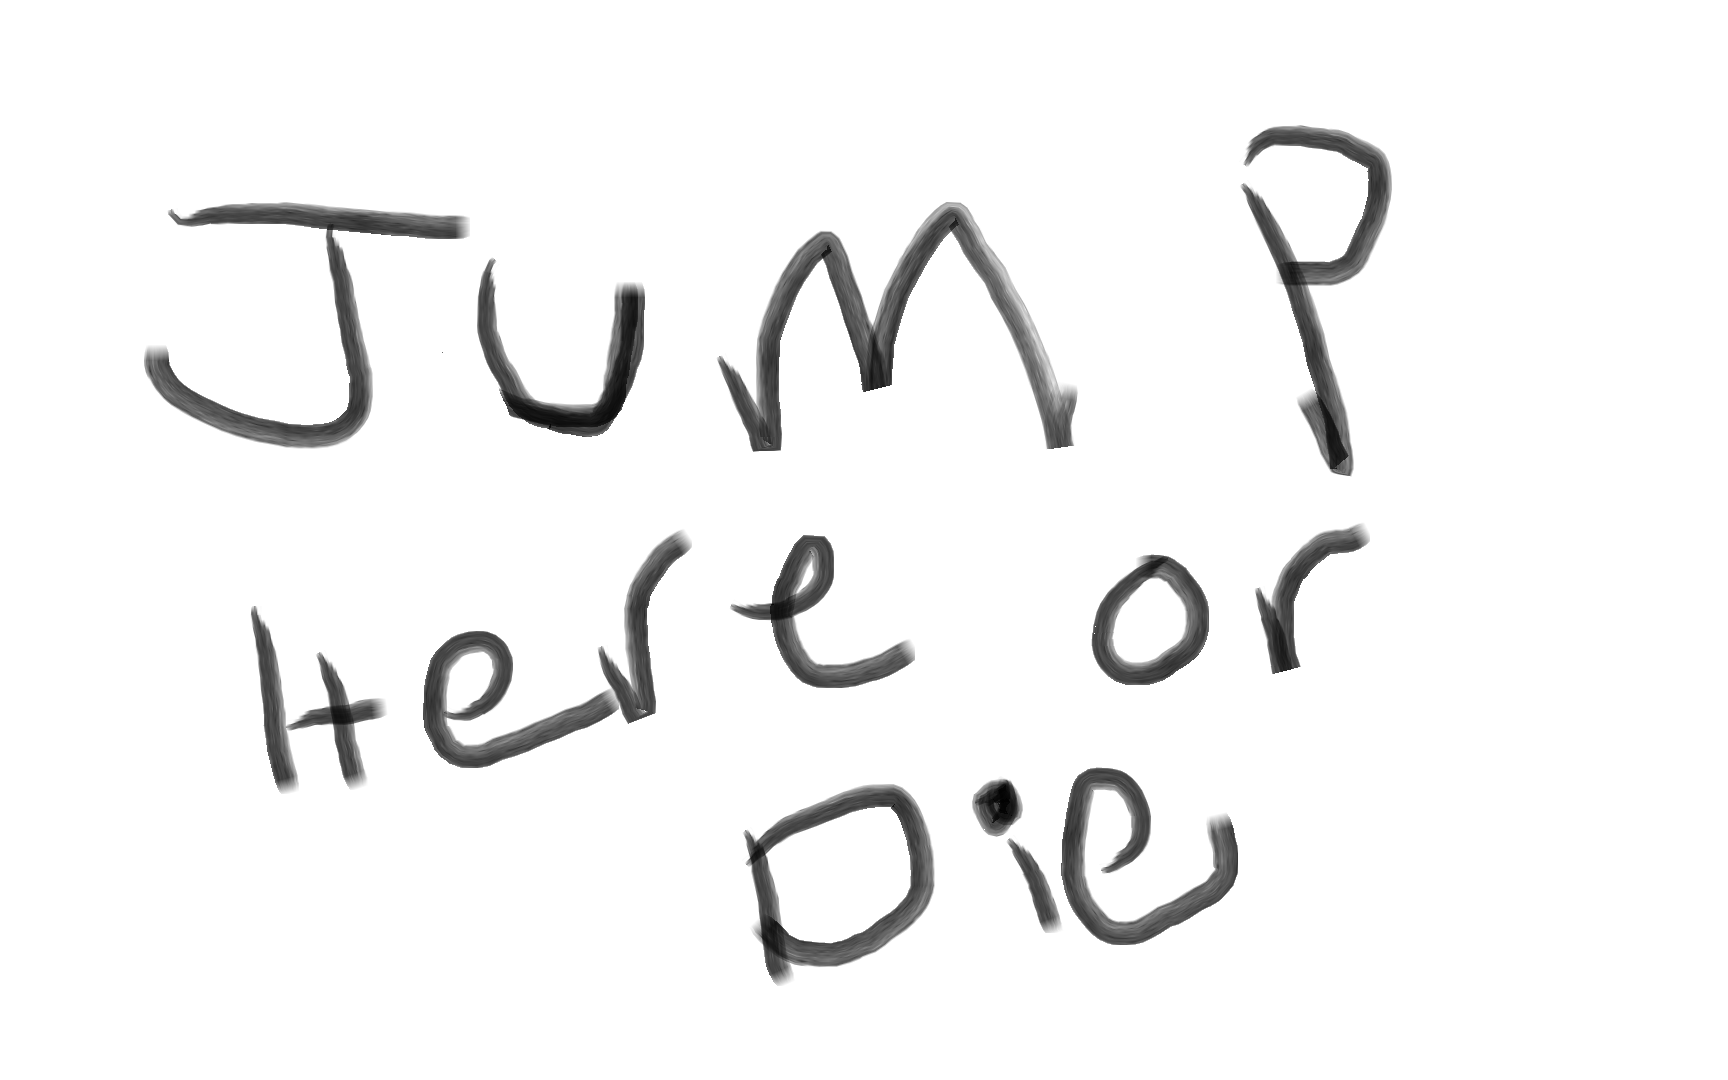 JumP
Here or
Die